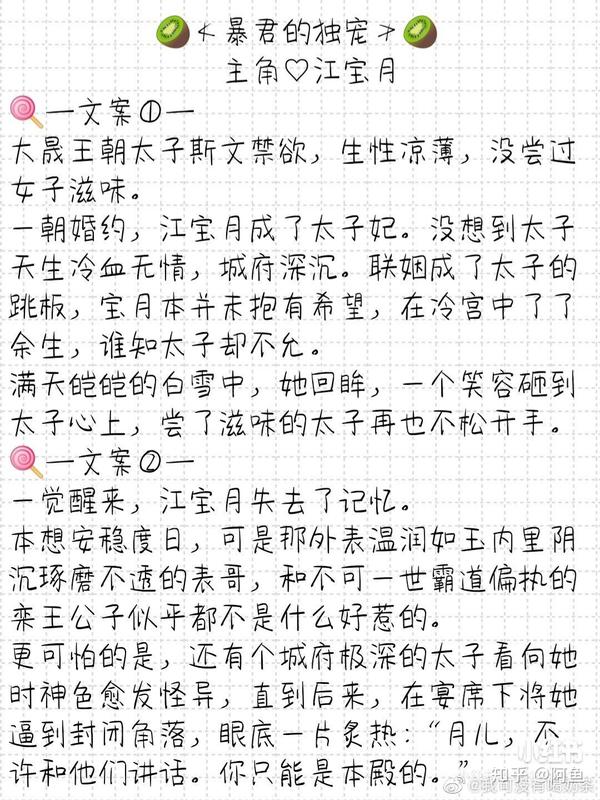 <暴君的独宠>
主角♡江宝月
—文案①—
大晟王朝太子斯文禁欲，生性凉薄，没尝过
女子滋味。
一朝婚约，江宝月成了太子妃。没想到太子
天生冷血无情，城府深沉。联姻成了太子的
跳板，宝月本并未抱有希望，在冷宫中了了
余生，谁知太子却不允。
满天皑皑的白雪中，她回眸，一个笑容砸到
太子心上，尝了滋味的太子再也不松开手。
—文案②—
一觉醒来，江宝月失去了记忆。
本想安稳度日，可是那外表温润如玉内里阴
沉琢磨不透的表哥，和不可一世霸道偏执的
栾王公子似乎都不是什么好惹的。
更可怕的是，还有个城府极深的太子看向她
时神色愈发怪异，直到后来，在宴席下将她
逼到封闭角落，眼底一片炙热：“月儿，不
许和他们讲话。你只能是本殿的。”
小红书
知乎 @阿鱼
@我可没有喝奶茶